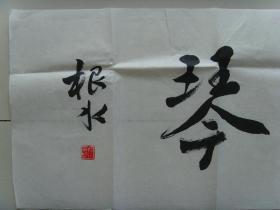 琴
根水